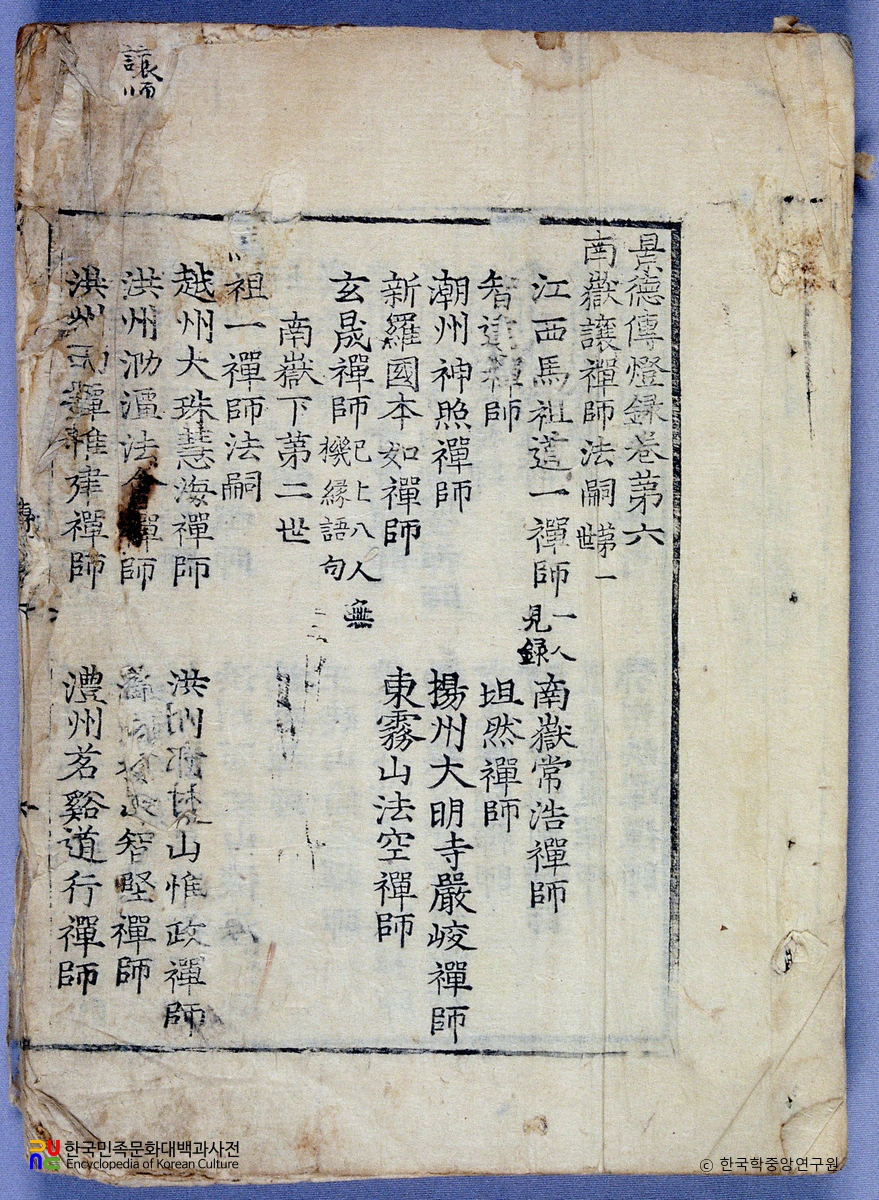 讓師
景德傳燈録卷第六
南嶽讓禪師法嗣第一世
江西馬祖道一禪師一人見録 南嶽常浩禪師
智達禪師 坦然禪師
潮州神照禪師 揚州大明寺嚴峻禪師
新羅國本如禪師 東霧山法空禪師
玄晟禪師已上八人無機緣語句
南嶽下第二世
祖一禪師法嗣
越州大珠慧海禪師 洪州山惟政禪師
洪州泐潭法會禪師 智堅禪師
洪州惟建禪師 澧州茗谿道行禪師
한국민족문화대백과사전
Encyclopedia of Korean Culture
© 한국학중앙연구원